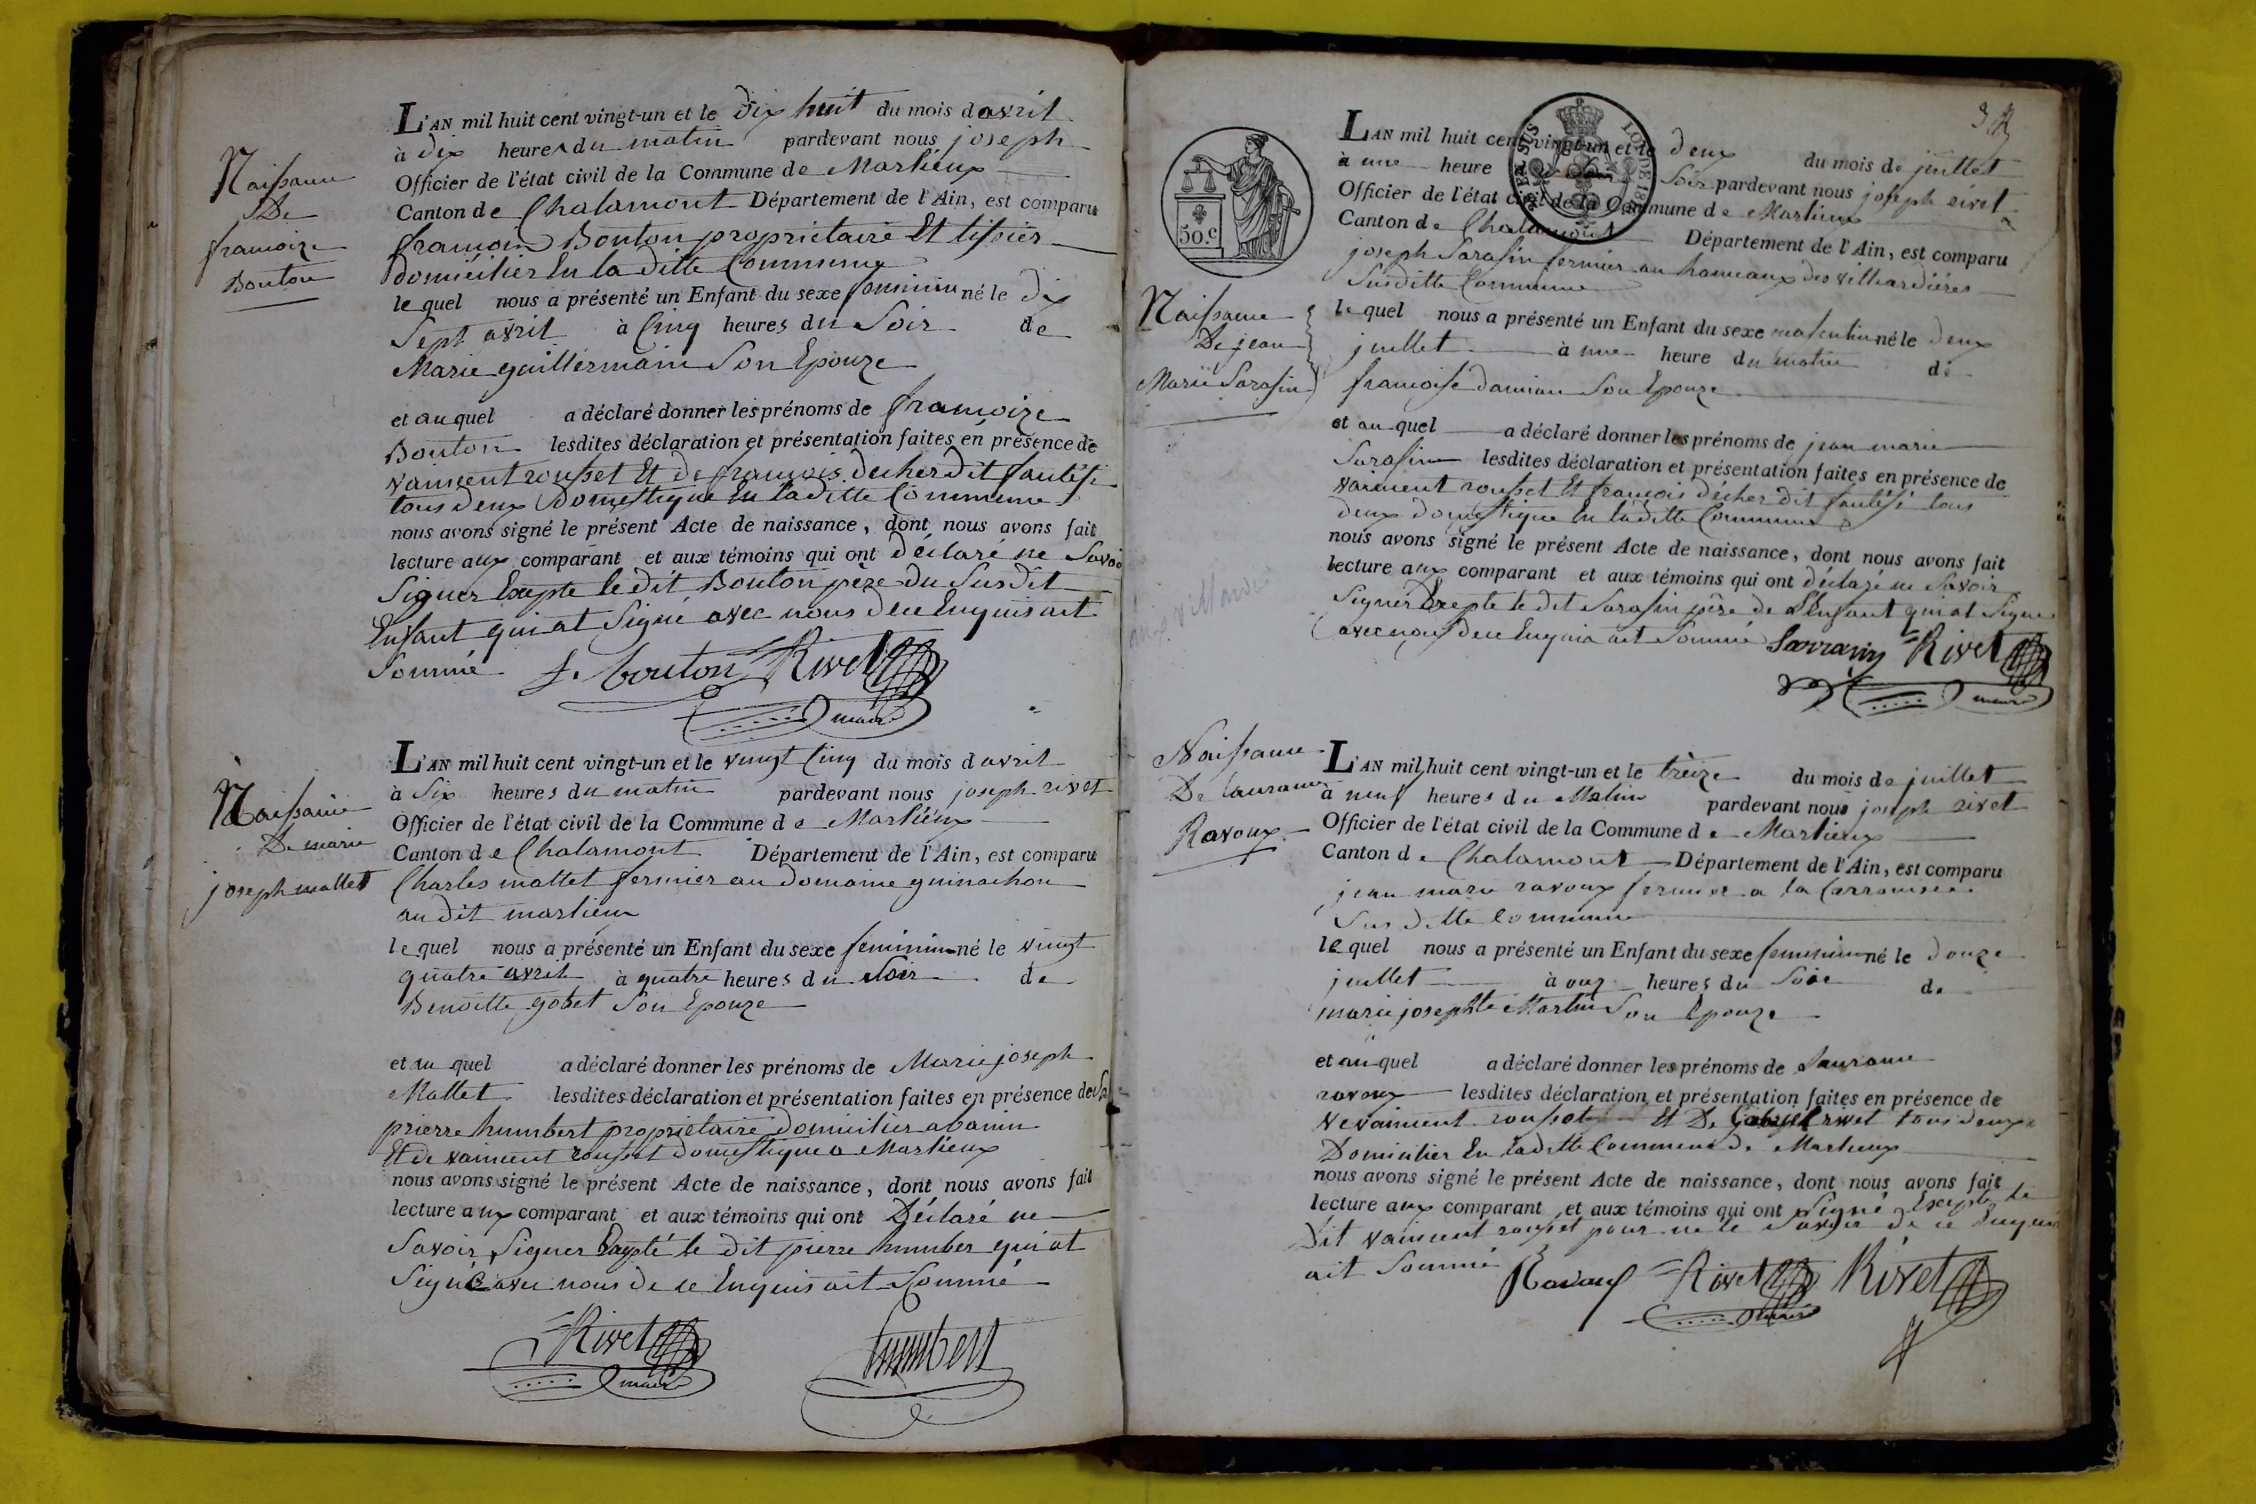 Naissance
De
francoize
Bouton
L'AN mil huit cent vingt-un et le dix huit du mois d avril
à dix heures du matin pardevant nous joseph
Officier de l'état civil de la Commune de Marlieux
Canton de Chalamont Département de l'Ain, est comparu
francois Bouton proprietaire Et tissier
domicilier En la ditte Commune
le quel nous a présenté un Enfant du sexe feminin né le dix
Sept avril à Cinq heures du Soir de
Marie guillermain Son Epouze
et au quel a déclaré donner les prénoms de francoize
Bouton lesdites déclaration et présentation faites en présence de
vaincent rousset Et de francois decher dit
tous deux domestique En la ditte Commune
nous avons signé le présent Acte de naissance, dont nous avons fait
lecture aux comparant et aux témoins qui ont déclaré ne Savoir
Signer Exepte le dit Bouton père du Susdit
Enfant qui at Signé avec nous de ce Enquis ait
Sommé f. bouton Rivet
maire
Naissance
De marie
joseph mallet
L'AN mil huit cent vingt-un et le vingt Cinq du mois d avril
à Six heures du matin pardevant nous joseph rivet
Officier de l'état civil de la Commune de Marlieux
Canton de Chalamont Département de l'Ain, est comparu
Charles mallet fermier au domaine guinachon
au dit marlieux
le quel nous a présenté un Enfant du sexe feminin né le vingt
quatre avril à quatre heures du Soir de
Benoitte gobet Son Epouze
et au quel a déclaré donner les prénoms de Marie joseph
Mallet lesdites déclaration et présentation faites en présence de
prierre humbert proprietaire domicilier a
Et de vaincent rousset domestique a Marlieux
nous avons signé le présent Acte de naissance, dont nous avons fait
lecture aux comparant et aux témoins qui ont Déclaré ne
Savoir Signer Exepté le dit pierre humber qui at
Signé avec nous de ce Enquis ait Sommé
Rivet humbert
maire
50.c
LOI DE
Naissance
De jean
Marie Sarasin
L'AN mil huit cent vingt-un et le deux du mois de juillet
à une heure Soir pardevant nous joseph rivet
Officier de l'état civil de la Commune de Marlieux
Canton de Chalamont Département de l'Ain, est comparu
joseph Sarasin fermier au hameaux des villiardières
Susditte Commune
le quel nous a présenté un Enfant du sexe masculin né le deux
juillet à une heure du matin de
francoise damian Son Epouze
et au quel a déclaré donner les prénoms de jean marie
Sarasin lesdites déclaration et présentation faites en présence de
vaincent rousset Et francois décher dit tous
deux domestique En laditte Commune
nous avons signé le présent Acte de naissance, dont nous avons fait
lecture aux comparant et aux témoins qui ont déclaré ne Savoir
Signer Exepte le dit Sarasin père de l'Enfant qui at Signe
avec nous de ce Enquis ait Sommé Sarrasin Rivet
maire
Naissance
De
Ravoux
L'AN mil huit cent vingt-un et le treize du mois de juillet
à neuf heures du Matin pardevant nous joseph rivet
Officier de l'état civil de la Commune de Marlieux
Canton de Chalamont Département de l'Ain, est comparu
jean marie ravoux fermier a la
Sus ditte Commune
le quel nous a présenté un Enfant du sexe feminin né le douze
juillet à onz heures du Soir de
marie josephte Martin Son Epouze
et au quel a déclaré donner les prénoms de
ravoux lesdites déclaration et présentation faites en présence de
vaincent rousset Et De Gabriel rivet tous deux
Domicilier En laditte Commune de Marlieux
nous avons signé le présent Acte de naissance, dont nous avons fait
lecture aux comparant et aux témoins qui ont Signé Exepte le
Dit vaincent rousset pour ne le Savoir de ce Enquis
ait Sommé Ravoux Rivet Rivet
maire